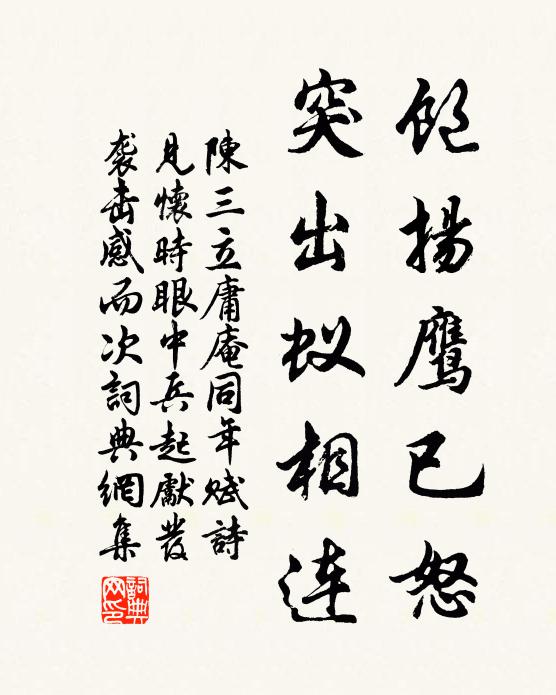 飽揚鷹已怒
突出蚁相連
陳三立庸庵同年賦詩
見懷時眼中兵起獻發
袭击感而次詞典網集
詞典
网印